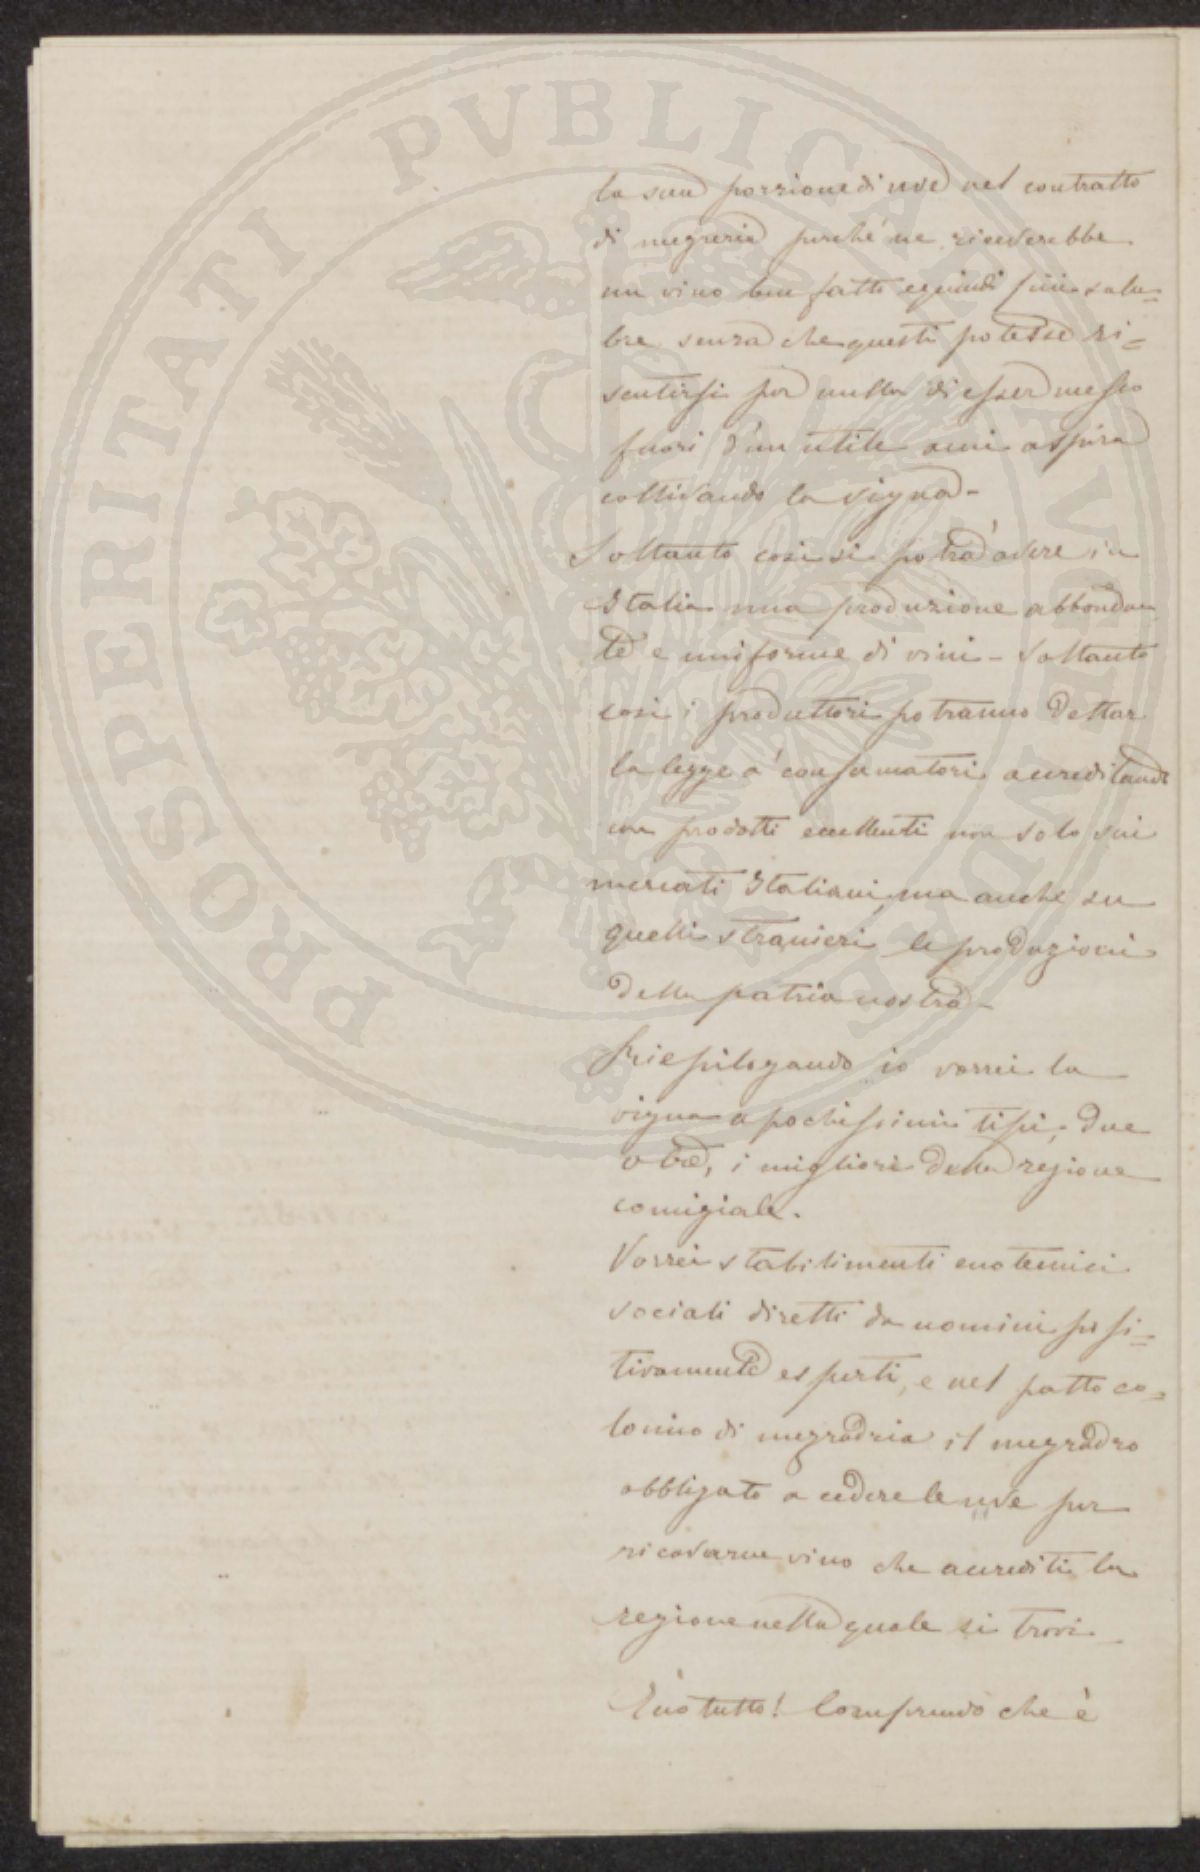 PROSPERITATI PVBLICAE AVGENDAE
la sua porzione di uve nel contratto
di mezzeria perché ne riceverebbe
un vino ben fatto e quindi più salu=
bre senza che questi potesse ri=
sentirsi per nulla di esser messo
fuori d'un utile a cui aspira
coltivando la vigna -
Soltanto così si potrà avere in
Italia una produzione abbondan
te e uniforme di vini - Soltanto
così i produttori potranno dettar
la legge a' consumatori accreditando
con prodotti eccellenti non solo sui
mercati Italiani, ma anche su
quelli stranieri le produzioni
della patria nostra -
Riepilogando io vorrei la
vigna a pochissimi tipi, due
o tre, i migliori della regione
comiziale.
Vorrei stabilimenti enotecnici
sociali diretti da uomini posi=
tivamente esperti, e nel patto co=
lonico di mezzadria il mezzadro
obbligato a cedere le uve per
ricavarne vino che accrediti la
regione nella quale si trovi
È uo tutto! Comprendo che è